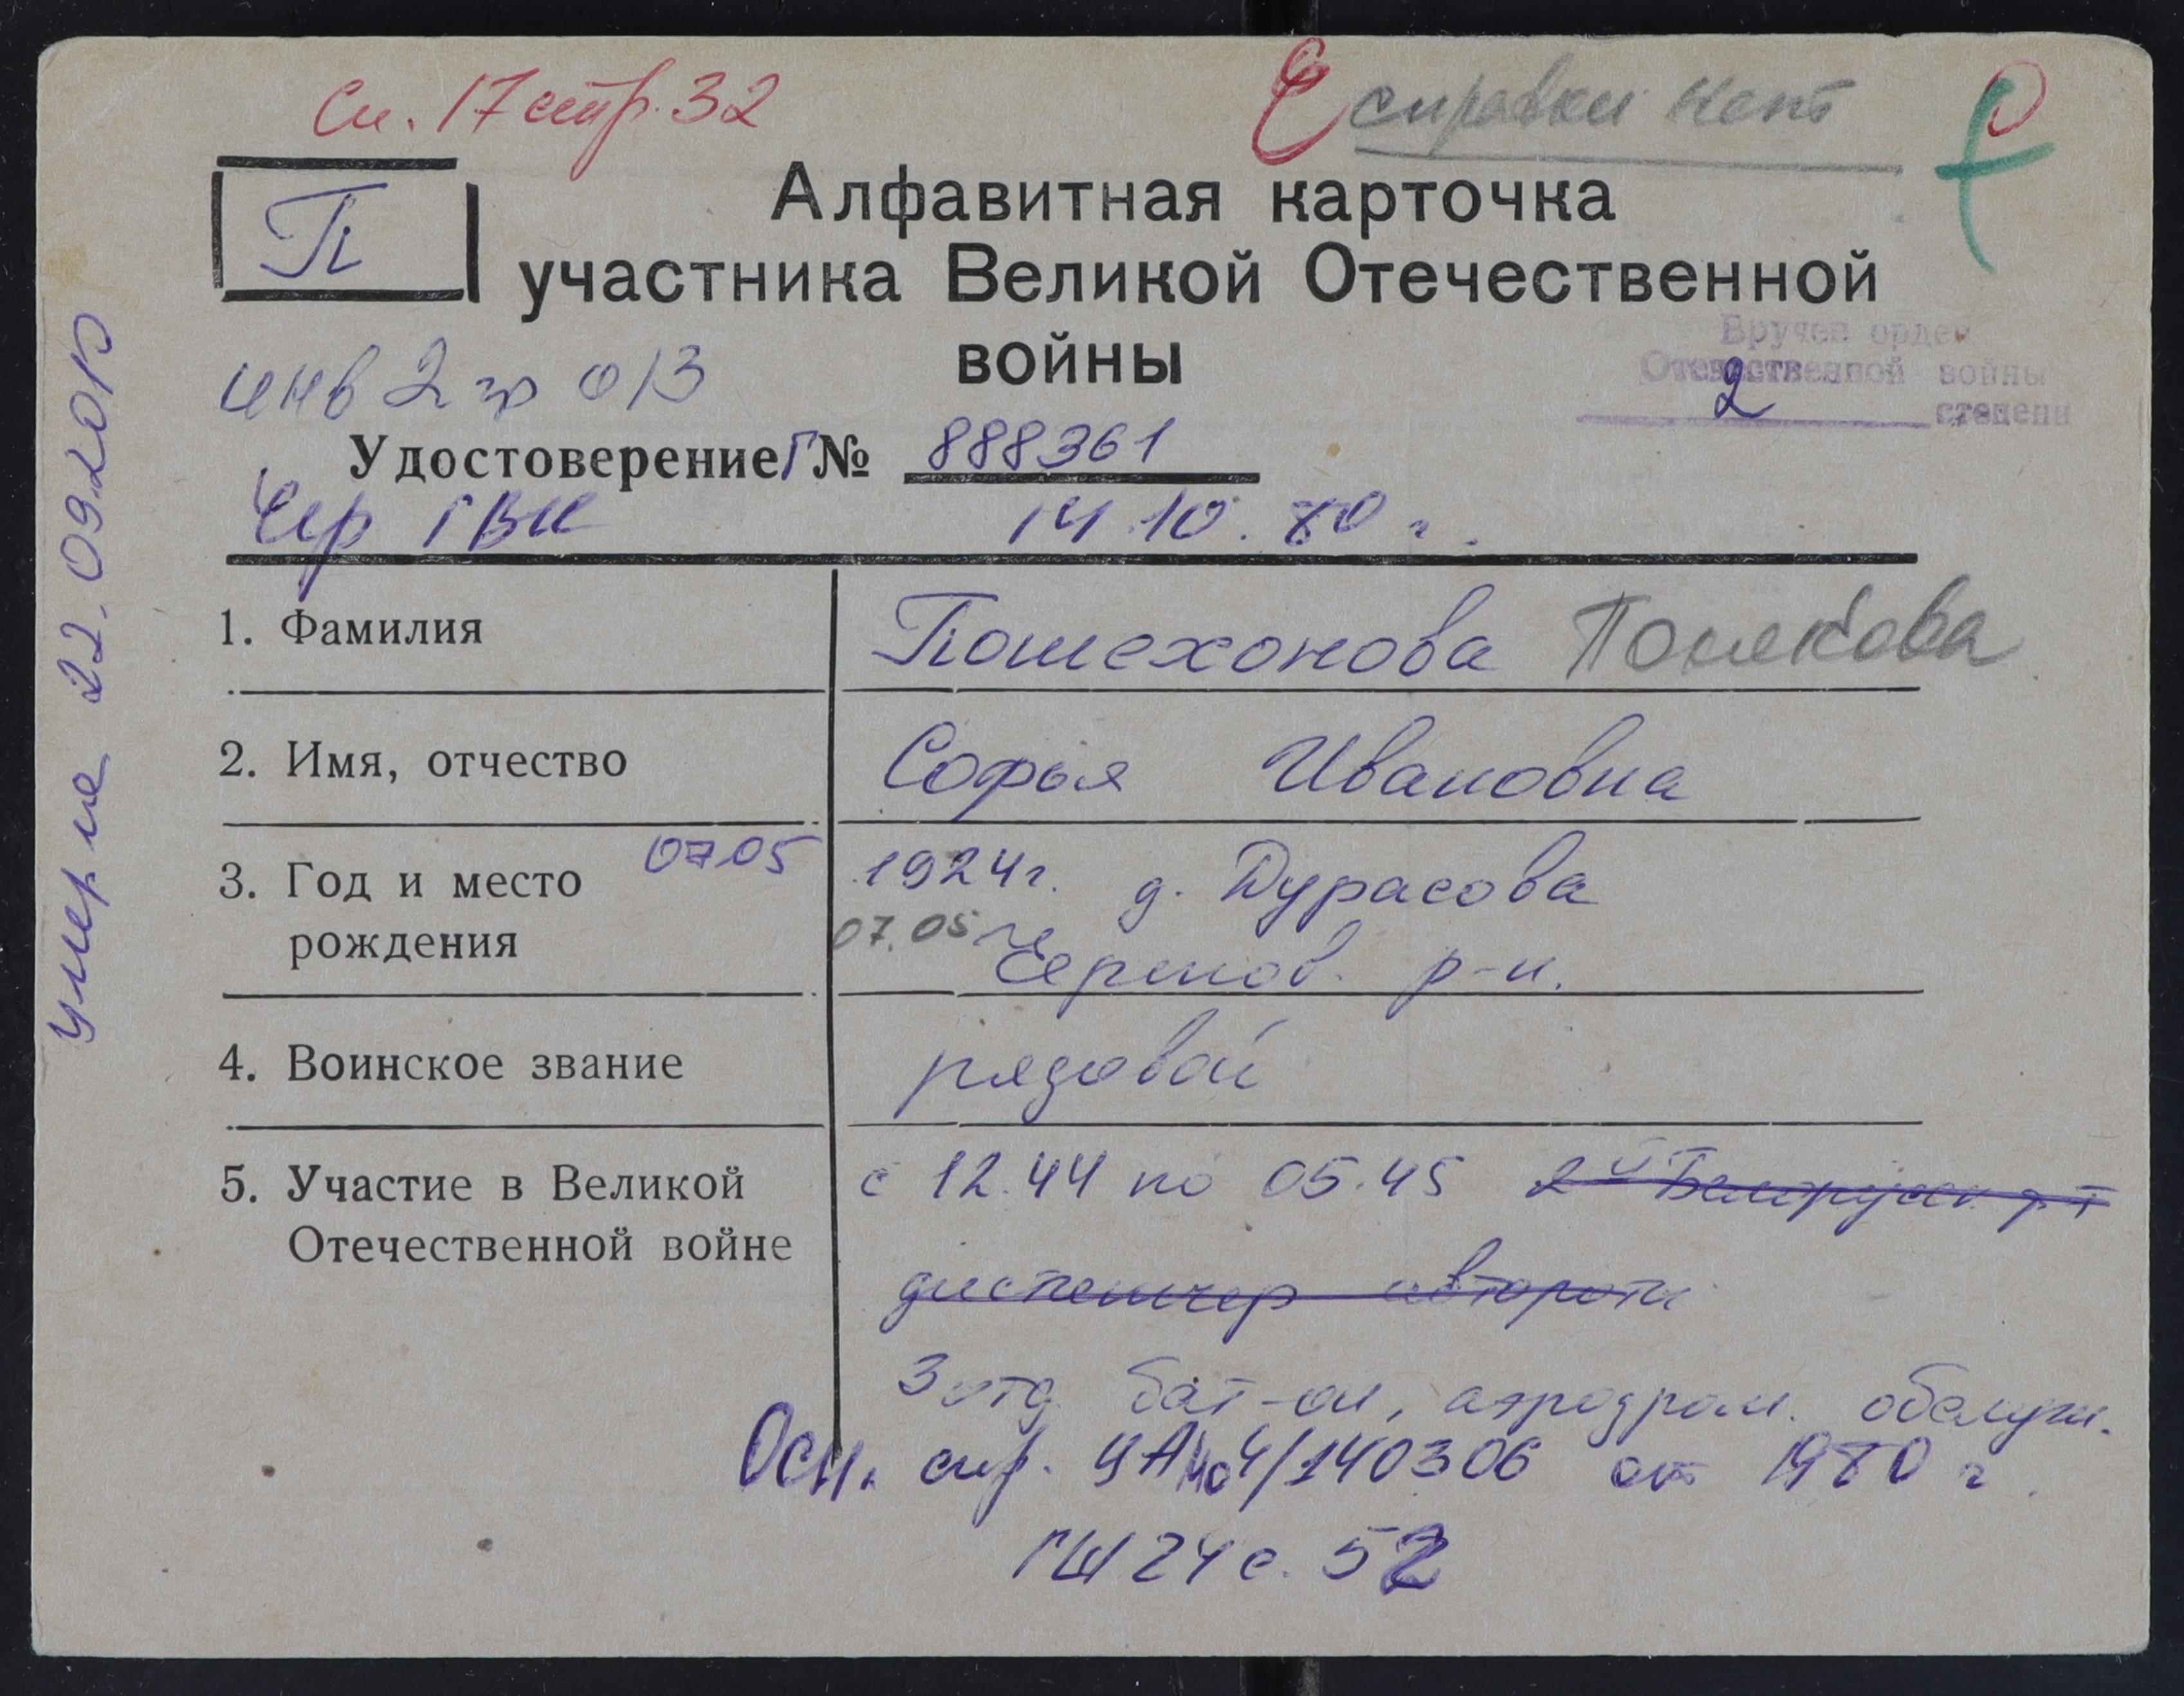 Сп. 17 стр. 32
справки нет
П
Алфавитная карточка
участника Великой Отечественной
войны
Вручен орден
Отечественной войны
2 степени
инв 2 гр ОЗ
Удостоверение Г № 888361
Чер ГВК 14.10.80 г.
умерла 22.09.2010
1. Фамилия Пошехонова Полякова
2. Имя, отчество Софья Ивановна
3. Год и место 07.05 1924г. д. Дурасова
рождения 07.05 Черепов. р-н.
4. Воинское звание рядовой
5. Участие в Великой с 12.44 по 05.45 2й Белорусск. ф-т
Отечественной войне диспетчер автороты
3 отд. бат-он, аэродром. обслуж.
Осн. спр. ЦАМО 4/140306 от 1980 г.
ГШ 24 с. 52